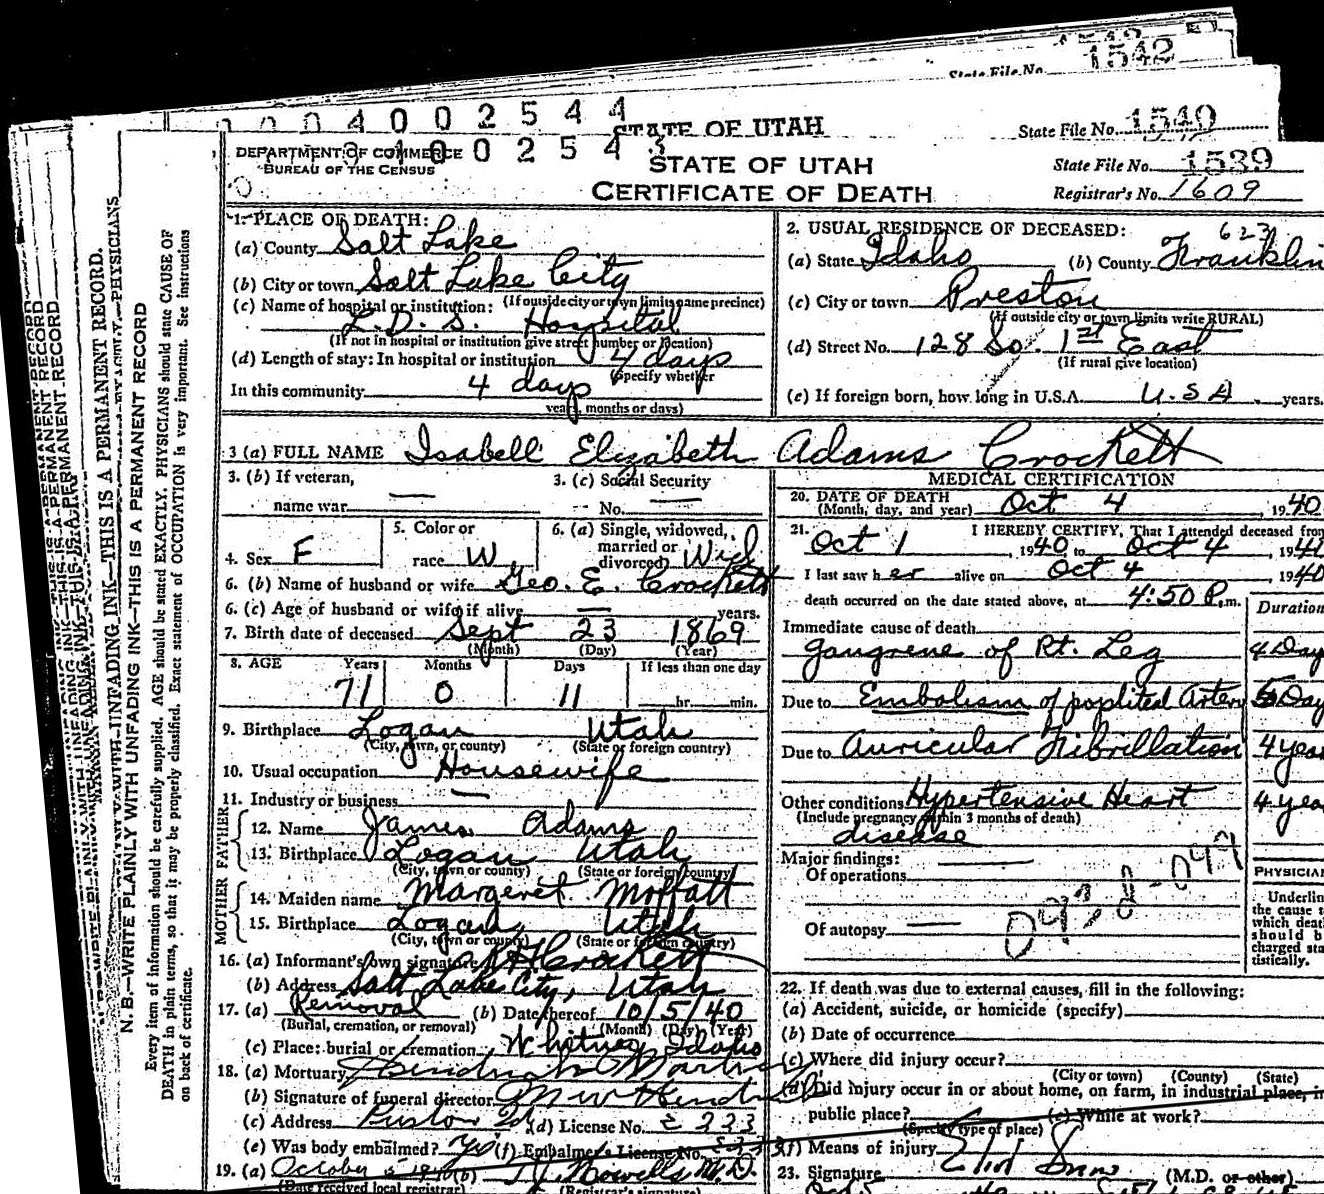 1542
State File No.
0 0 0 4 0 0 2 5 4 4
STATE OF UTAH
State File No. 1540
1 0 0 2 5 4 3
DEPARTMENT OF COMMERCE
BUREAU OF THE CENSUS
STATE OF UTAH
CERTIFICATE OF DEATH
State File No. 1539
Registrar's No. 1609
1. PLACE OF DEATH:
(a) County Salt Lake
(b) City or town Salt Lake City
(If outside city or town limits name precinct)
(c) Name of hospital or institution:
L.D.S. Hospital
(If not in hospital or institution give street number or location)
(d) Length of stay: In hospital or institution 4 days
(Specify whether
In this community 4 days
years, months or days)
2. USUAL RESIDENCE OF DECEASED: 623
(a) State Idaho (b) County Franklin
(c) City or town Preston
(If outside city or town limits write RURAL)
(d) Street No. 128 So. 1st East
(If rural give location)
(e) If foreign born, how long in U.S.A. U.S.A. years.
3 (a) FULL NAME Isabell Elizabeth Adams Crockett
3. (b) If veteran,
name war —
3. (c) Social Security
No. —
4. Sex F
5. Color or
race W
6. (a) Single, widowed,
married or
divorced) Wid
6. (b) Name of husband or wife Geo. E. Crockett
6. (c) Age of husband or wife if alive — years.
7. Birth date of deceased Sept 23 1869
(Month) (Day) (Year)
8. AGE Years Months Days If less than one day
71 0 11 hr. min.
9. Birthplace Logan Utah
(City, town, or county) (State or foreign country)
10. Usual occupation Housewife
11. Industry or business —
FATHER
12. Name James Adams
13. Birthplace Logan Utah
(City, town or county) (State or foreign country)
MOTHER
14. Maiden name Margeret Moffatt
15. Birthplace Logan Utah
(City, town or county) (State or foreign country)
16. (a) Informant's own signature H Crockett
(b) Address Salt Lake City, Utah
17. (a) Removal (b) Date thereof 10/5/40
(Burial, cremation, or removal) (Month) (Day) (Year)
(c) Place: burial or cremation Whitney, Idaho
18. (a) Mortuary
(b) Signature of funeral director
(c) Address Preston Id. (d) License No. 233
(e) Was body embalmed? Yes (f) Embalmer's License No.
19. (a) October 5 1940 (b) T.J. Howells M.D.
(Date received local registrar) (Registrar's signature)
MEDICAL CERTIFICATION
20. DATE OF DEATH
(Month, day, and year) Oct 4, 1940
21. I HEREBY CERTIFY, That I attended deceased from
Oct 1, 1940 to Oct 4, 1940
I last saw her alive on Oct 4, 1940
death occurred on the date stated above, at 4:50 P.m.
Duration
Immediate cause of death
gangrene of Rt. Leg 4 Day
Due to Embolism of popliteal Artery 5 Day
Due to Auricular Fibrillation 4 yea
Other conditions Hypertensive Heart 4 yea
(Include pregnancy within 3 months of death)
disease
Major findings:
Of operations —
Of autopsy —
PHYSICIAN
Underline
the cause to
which death
should be
charged sta-
tistically.
22. If death was due to external causes, fill in the following:
(a) Accident, suicide, or homicide (specify)
(b) Date of occurrence
(c) Where did injury occur?
(City or town) (County) (State)
(d) Did injury occur in or about home, on farm, in industrial place, in
public place? (e) While at work?
(Specify type of place)
(f) Means of injury
23. Signature Eliot Snow (M.D. or other)
N. B.—WRITE PLAINLY WITH UNFADING INK—THIS IS A PERMANENT RECORD
Every item of information should be carefully supplied. AGE should be stated EXACTLY. PHYSICIANS should state CAUSE OF
DEATH in plain terms, so that it may be properly classified. Exact statement of OCCUPATION is very important. See instructions
on back of certificate.